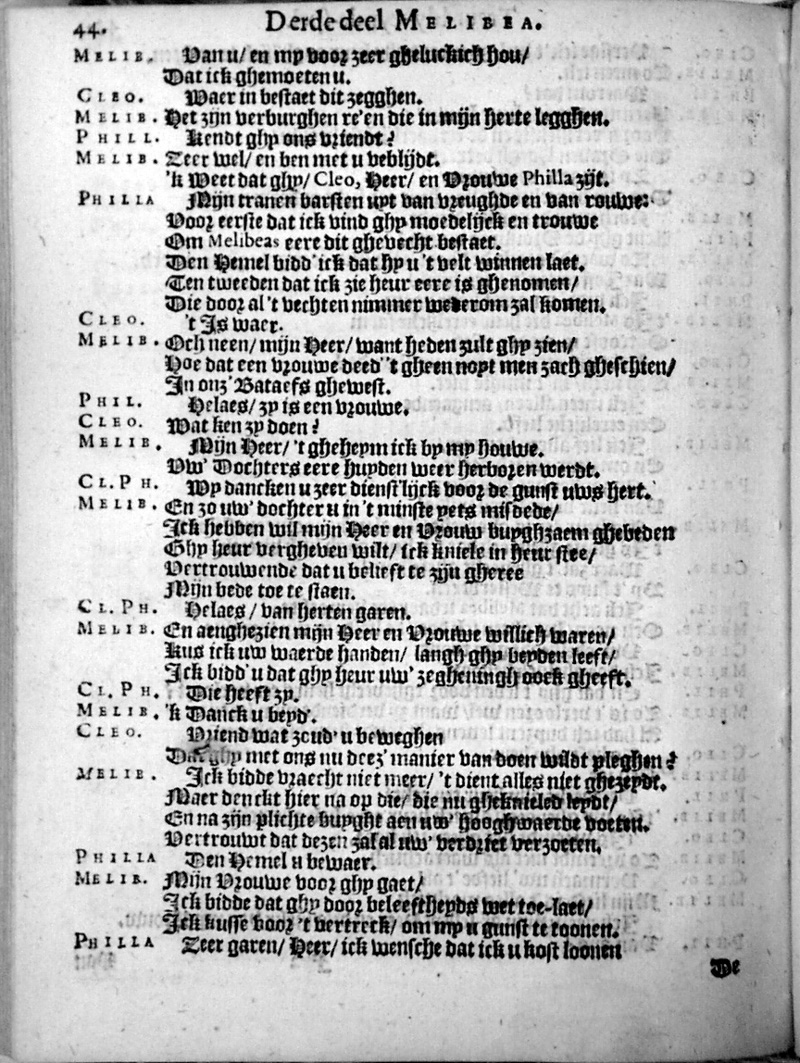 44. Derde deel MELIBEA.
MELIB. Van u/ en my voor zeer gheluckich hou/
Dat ick ghemoeten u.
CLEO. Waer in bestaet dit zegghen.
MELIB. Het zijn verburghen re'en die in mijn herte legghen.
PHILL. Kendt ghy ons vriendt?
MELIB. Zeer wel/ en ben met u veblijdt.
'k Weet dat ghy/ Cleo, Heer/ en Vrouwe Philla zijt.
PHILLA Mijn tranen barsten uyt van vreughde en van rouwe:
Voor eerste dat ick vind ghy moedelijck en trouwe
Om Melibeas eere dit ghevecht bestaet.
Den Hemel bidd' ick dat hy u 't velt winnen laet.
Ten tweeden dat ick zie heur eere is ghenomen/
Die door al 't vechten nimmer wederom zal komen.
CLEO. 't Is waer.
MELIB. Och neen/ mijn Heer/ want heden zult ghy zien/
Hoe dat een vrouwe deed' 't gheen noyt men zach gheschien/
In onz' Bataefs ghewest.
PHIL. Helaes/ zy is een vrouwe.
CLEO. Wat ken zy doen?
MELIB. Mijn Heer/ 't gheheym ick by my houwe.
Uw' Dochters eere huyden weer herboren werdt.
CL. PH. Wy dancken u zeer dienst'lijck voor de gunst uws hert.
MELIB. En zo uw' dochter u in 't minste yets misdede/
Ick hebben wil mijn Heer en Vrouw buyghzaem ghebeden
Ghy heur vergheven wilt/ ick kniele in heur stee/
Vertrouwende dat u belieft te zijn gheree
Mijn bede toe te staen.
CL. PH. Helaes/ van herten garen.
MELIB. En aenghezien mijn Heer en Vrouwe willich waren/
Kus ick uw waerde handen/ langh ghy beyden leeft/
Ick bidd' u dat ghy heur uw' zegheningh oock gheeft.
CL. PH. Die heeft zy.
MELIB. 'k Danck u beyd'.
CLEO. Vriend wat zoud' u beweghen
Dat ghy met ons nu deez' manier van doen wildt pleghen?
MELIB. Ick bidde vraecht niet meer/ 't dient alles niet ghezeydt.
Maer denckt hier na op die/ die nu gheknieled leydt/
En na zijn plichte buyght aen uw' hooghwaerde voeten.
Vertrouwt dat dezen zal al uw' verdriet verzoeten.
PHILLA Den Hemel u bewaer.
MELIB. Mijn Vrouwe voor ghy gaet/
Ick bidde dat ghy door beleeftheyds wet toe-laet/
Ick kusse voor 't vertreck/ om my u gunst te toonen.
PHILLA Zeer garen/ Heer/ ick wensche dat ick u kost loonen
De